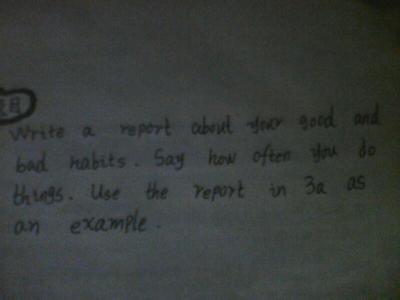 题目
Write a report about your good and
bad habits. Say how often you do
things. Use the report in 3a as
an example.